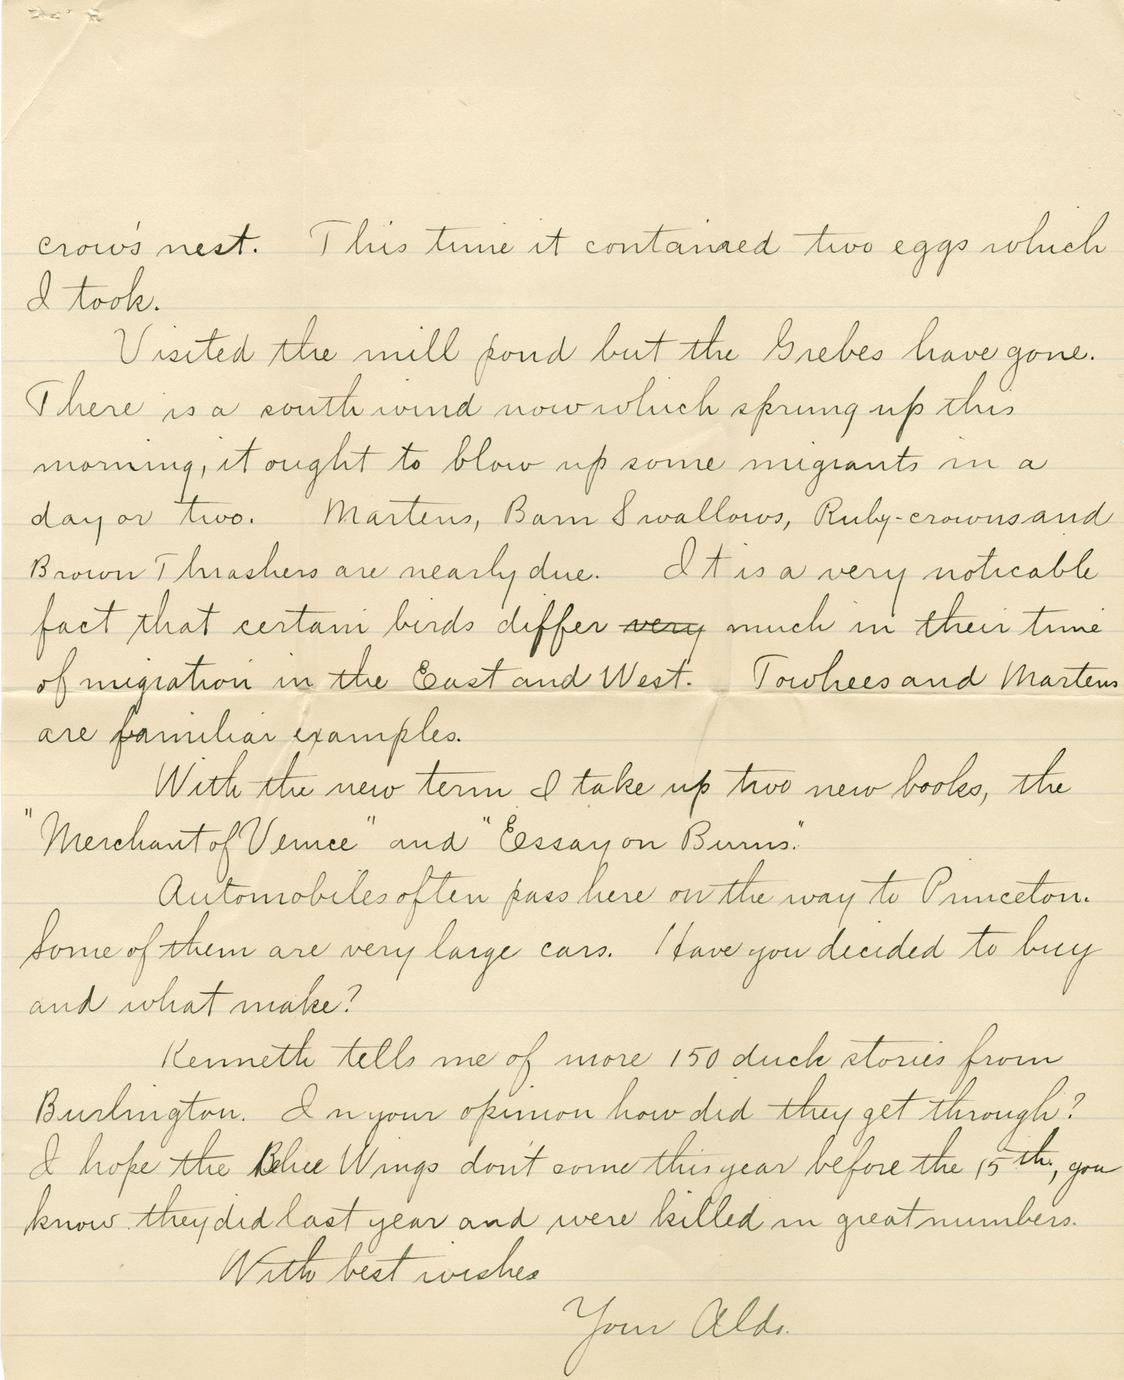 crow's nest. This time it contained two eggs which
I took.
Visited the mill pond but the Grebes have gone.
There is a south wind now which sprung up this
morning, it ought to blow up some migrants in a
day or two. Martens, Barn Swallows, Ruby-crowns and
Brown Thrashers are nearly due. It is a very noticable
fact that certain birds differ very much in their time
of migration in the East and West. Towhees and Martens
are familiar examples.
With the new term I take up two new books, the
"Merchant of Venice" and "Essay on Burns."
Automobiles often pass here on the way to Princeton.
Some of them are very large cars. Have you decided to buy
and what make?
Kenneth tells me of more 150 duck stories from
Burlington. In your opinion how did they get through?
I hope the Blue Wings don't come this year before the 15th, you
know they did last year and were killed in great numbers.
With best wishes
Your Aldo.